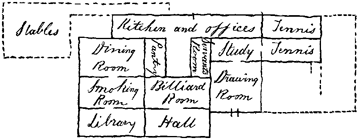 Stables
Kitchen and offices
Tennis
Dining
Room
Pantry
Servants
Room
Study
Tennis
Drawing
Room
Smoking
Room
Billiard
Room
Library
Hall